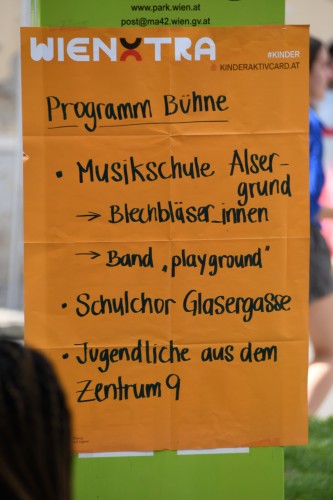 www.park.wien.at
post@ma42.wien.gv.at
WIENXTRA
#KINDER
KINDERAKTIVCARD.AT
Programm Bühne
• Musikschule Alser-
grund
→ Blechbläser_innen
→ Band „playground"
• Schulchor Glasergasse
• Jugendliche aus dem
Zentrum 9